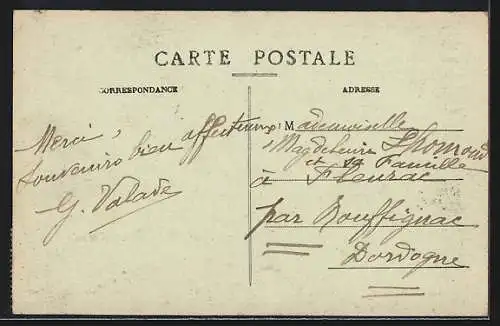 CARTE POSTALE
CORRESPONDANCE
ADRESSE
Merci,
souvenirs bien affectueux!
G. Valade
Mademoiselle
et sa Famille
à Fleurac
par Rouffignac
Dordogne